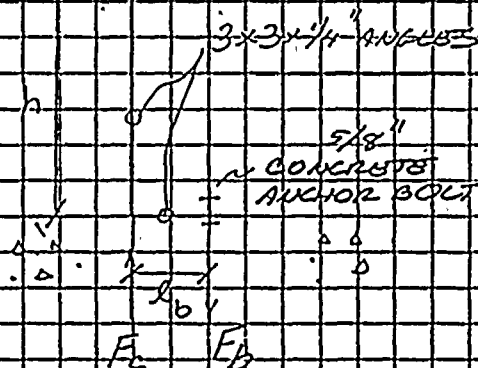 3x3x1/4" ANGLES
h
5/8"
CONCRETE
ANCHOR BOLT
lb
Fc